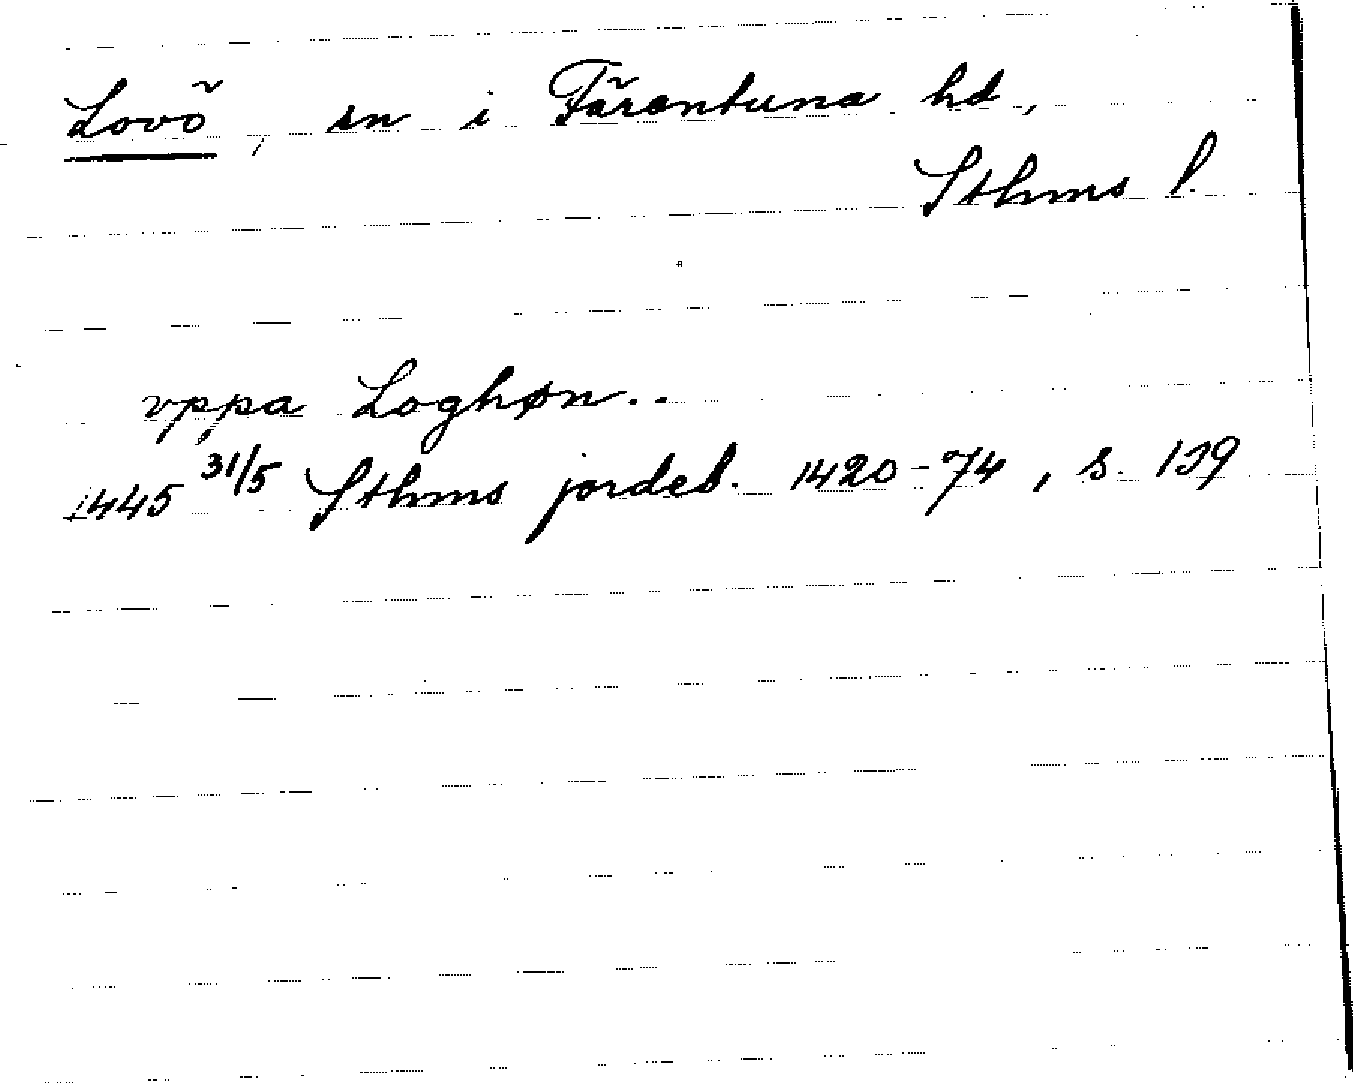 Lovö, sn i Färentuna hd,
Sthms l.
vppa Loghøn..
1445 31/5 Sthms jordeb. 1420-74, s. 139